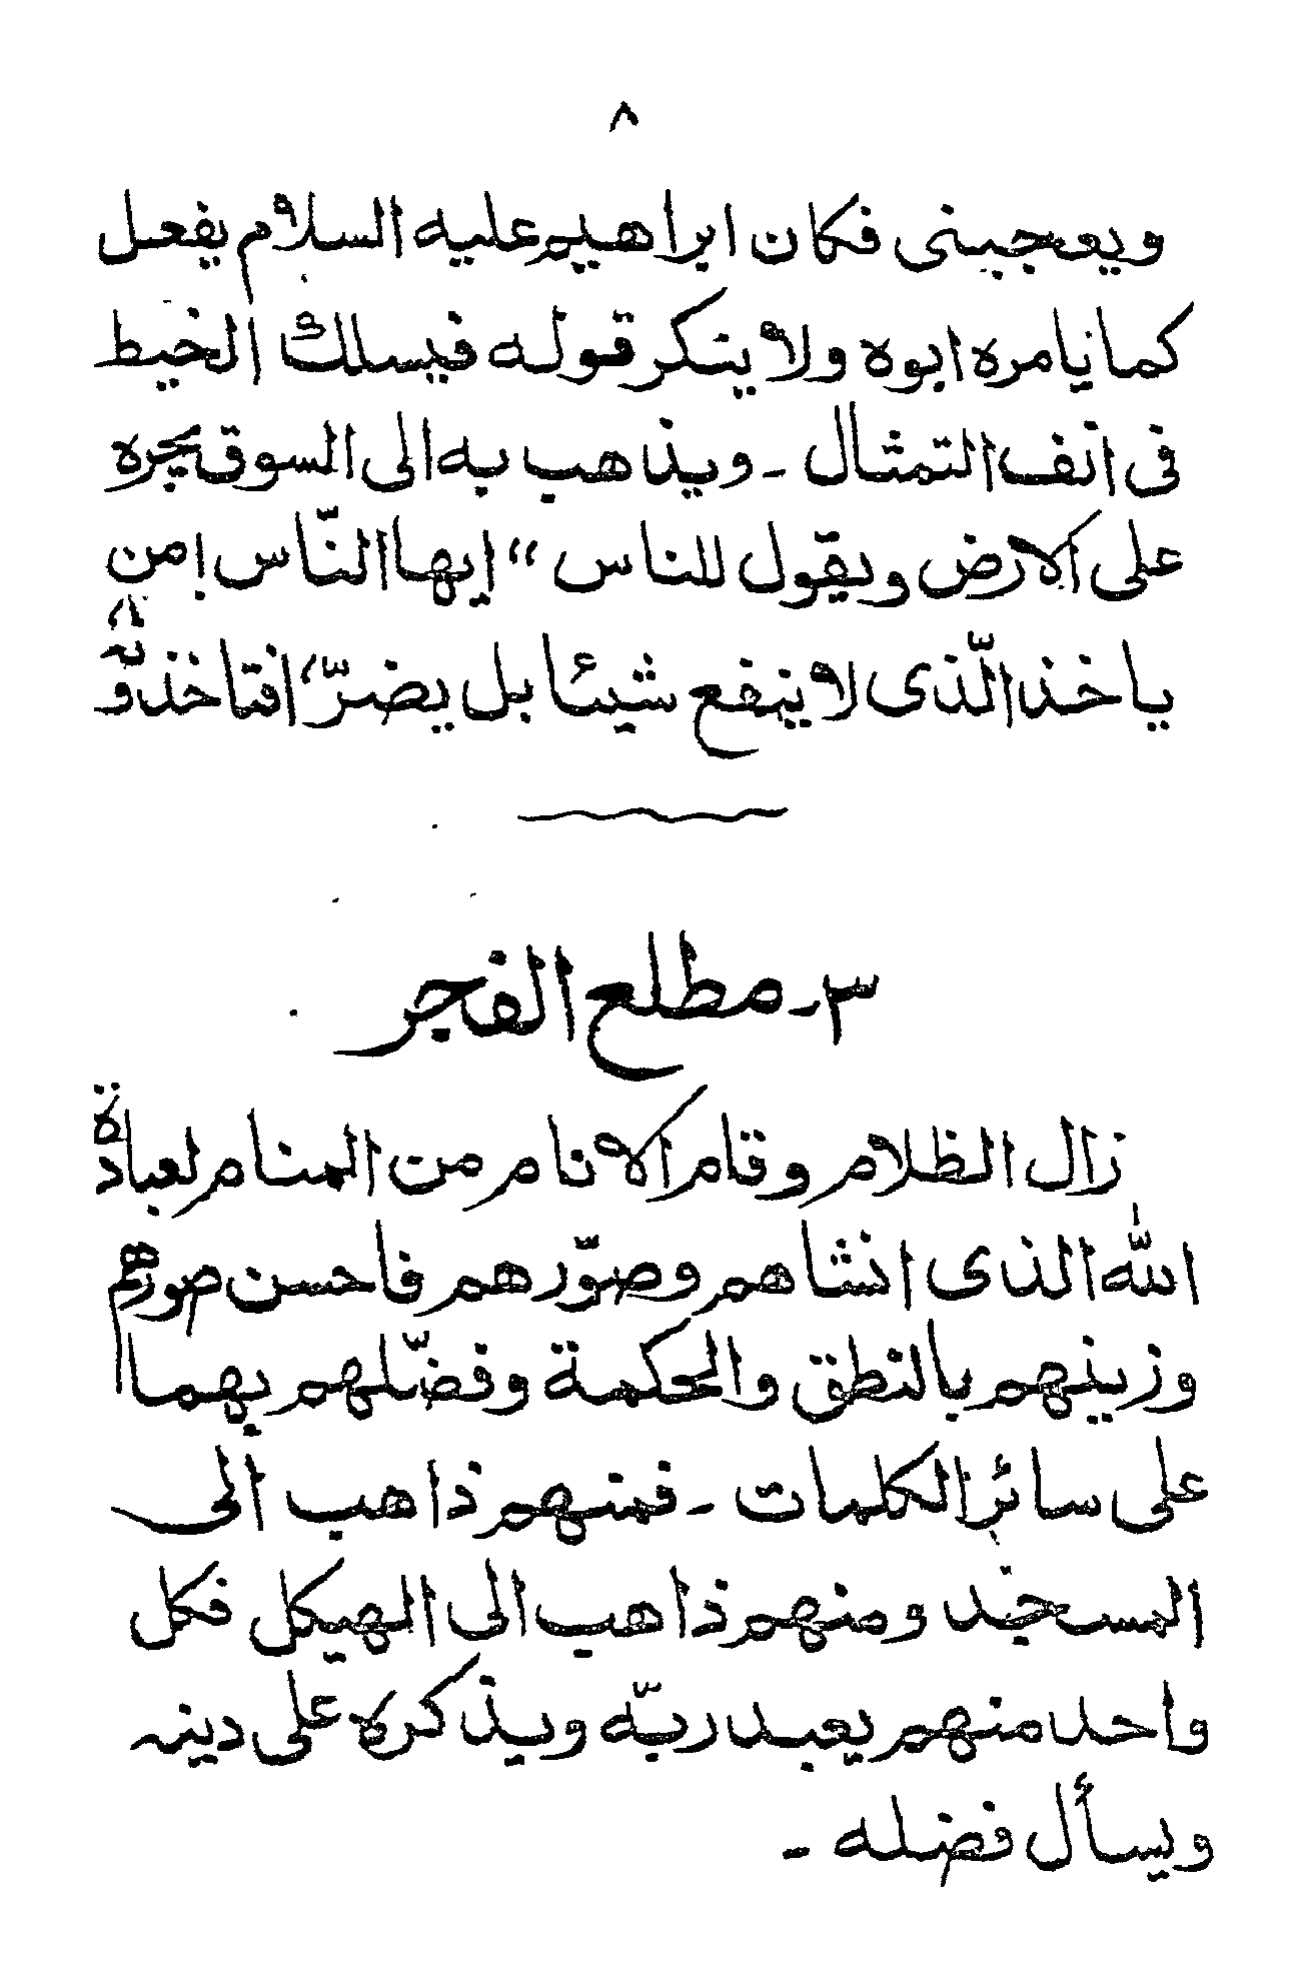 ٨
ويعجبنى فكان ابراهيم عليه السلام يفعل
كما يامره ابوه ولا ينكر قوله فيسلك الخيط
فى انف التمثال - ويذهب به الى السوق يجره
على الارض ويقول للناس “ ايها النّاس امن
ياخذ الّذى لا ينفع شيئا بل يضرّ، افتاخذونه “
٣- مطلع الفجر
زال الظلام وقام الانام من المنام لعبادة
الله الذى انشاهم وصوّرهم فاحسن صورهم
وزينهم بالنطق والحكمة وفضّلهم بهما
على سائر الكلمات - فمنهم ذاهب الى
المسجد ومنهم ذاهب الى الهيكل فكل
واحد منهم يعبد ربّه ويذكره على دينه
ويسأل فضله -